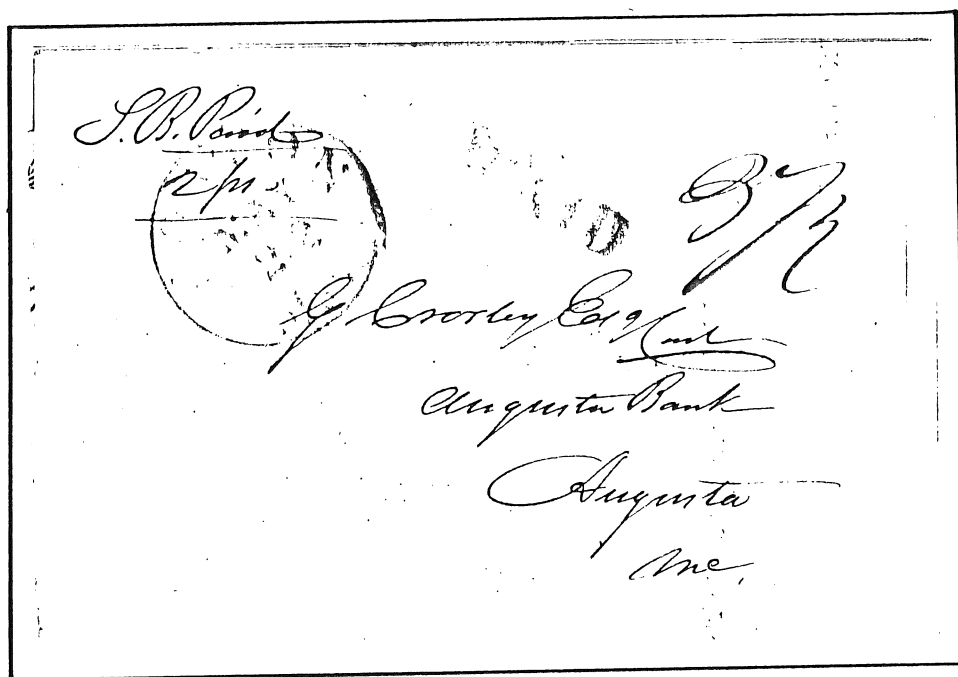 S. B. Paid
2/11
G Crosby Esq Cash
Augusta Bank
Augusta
Me.